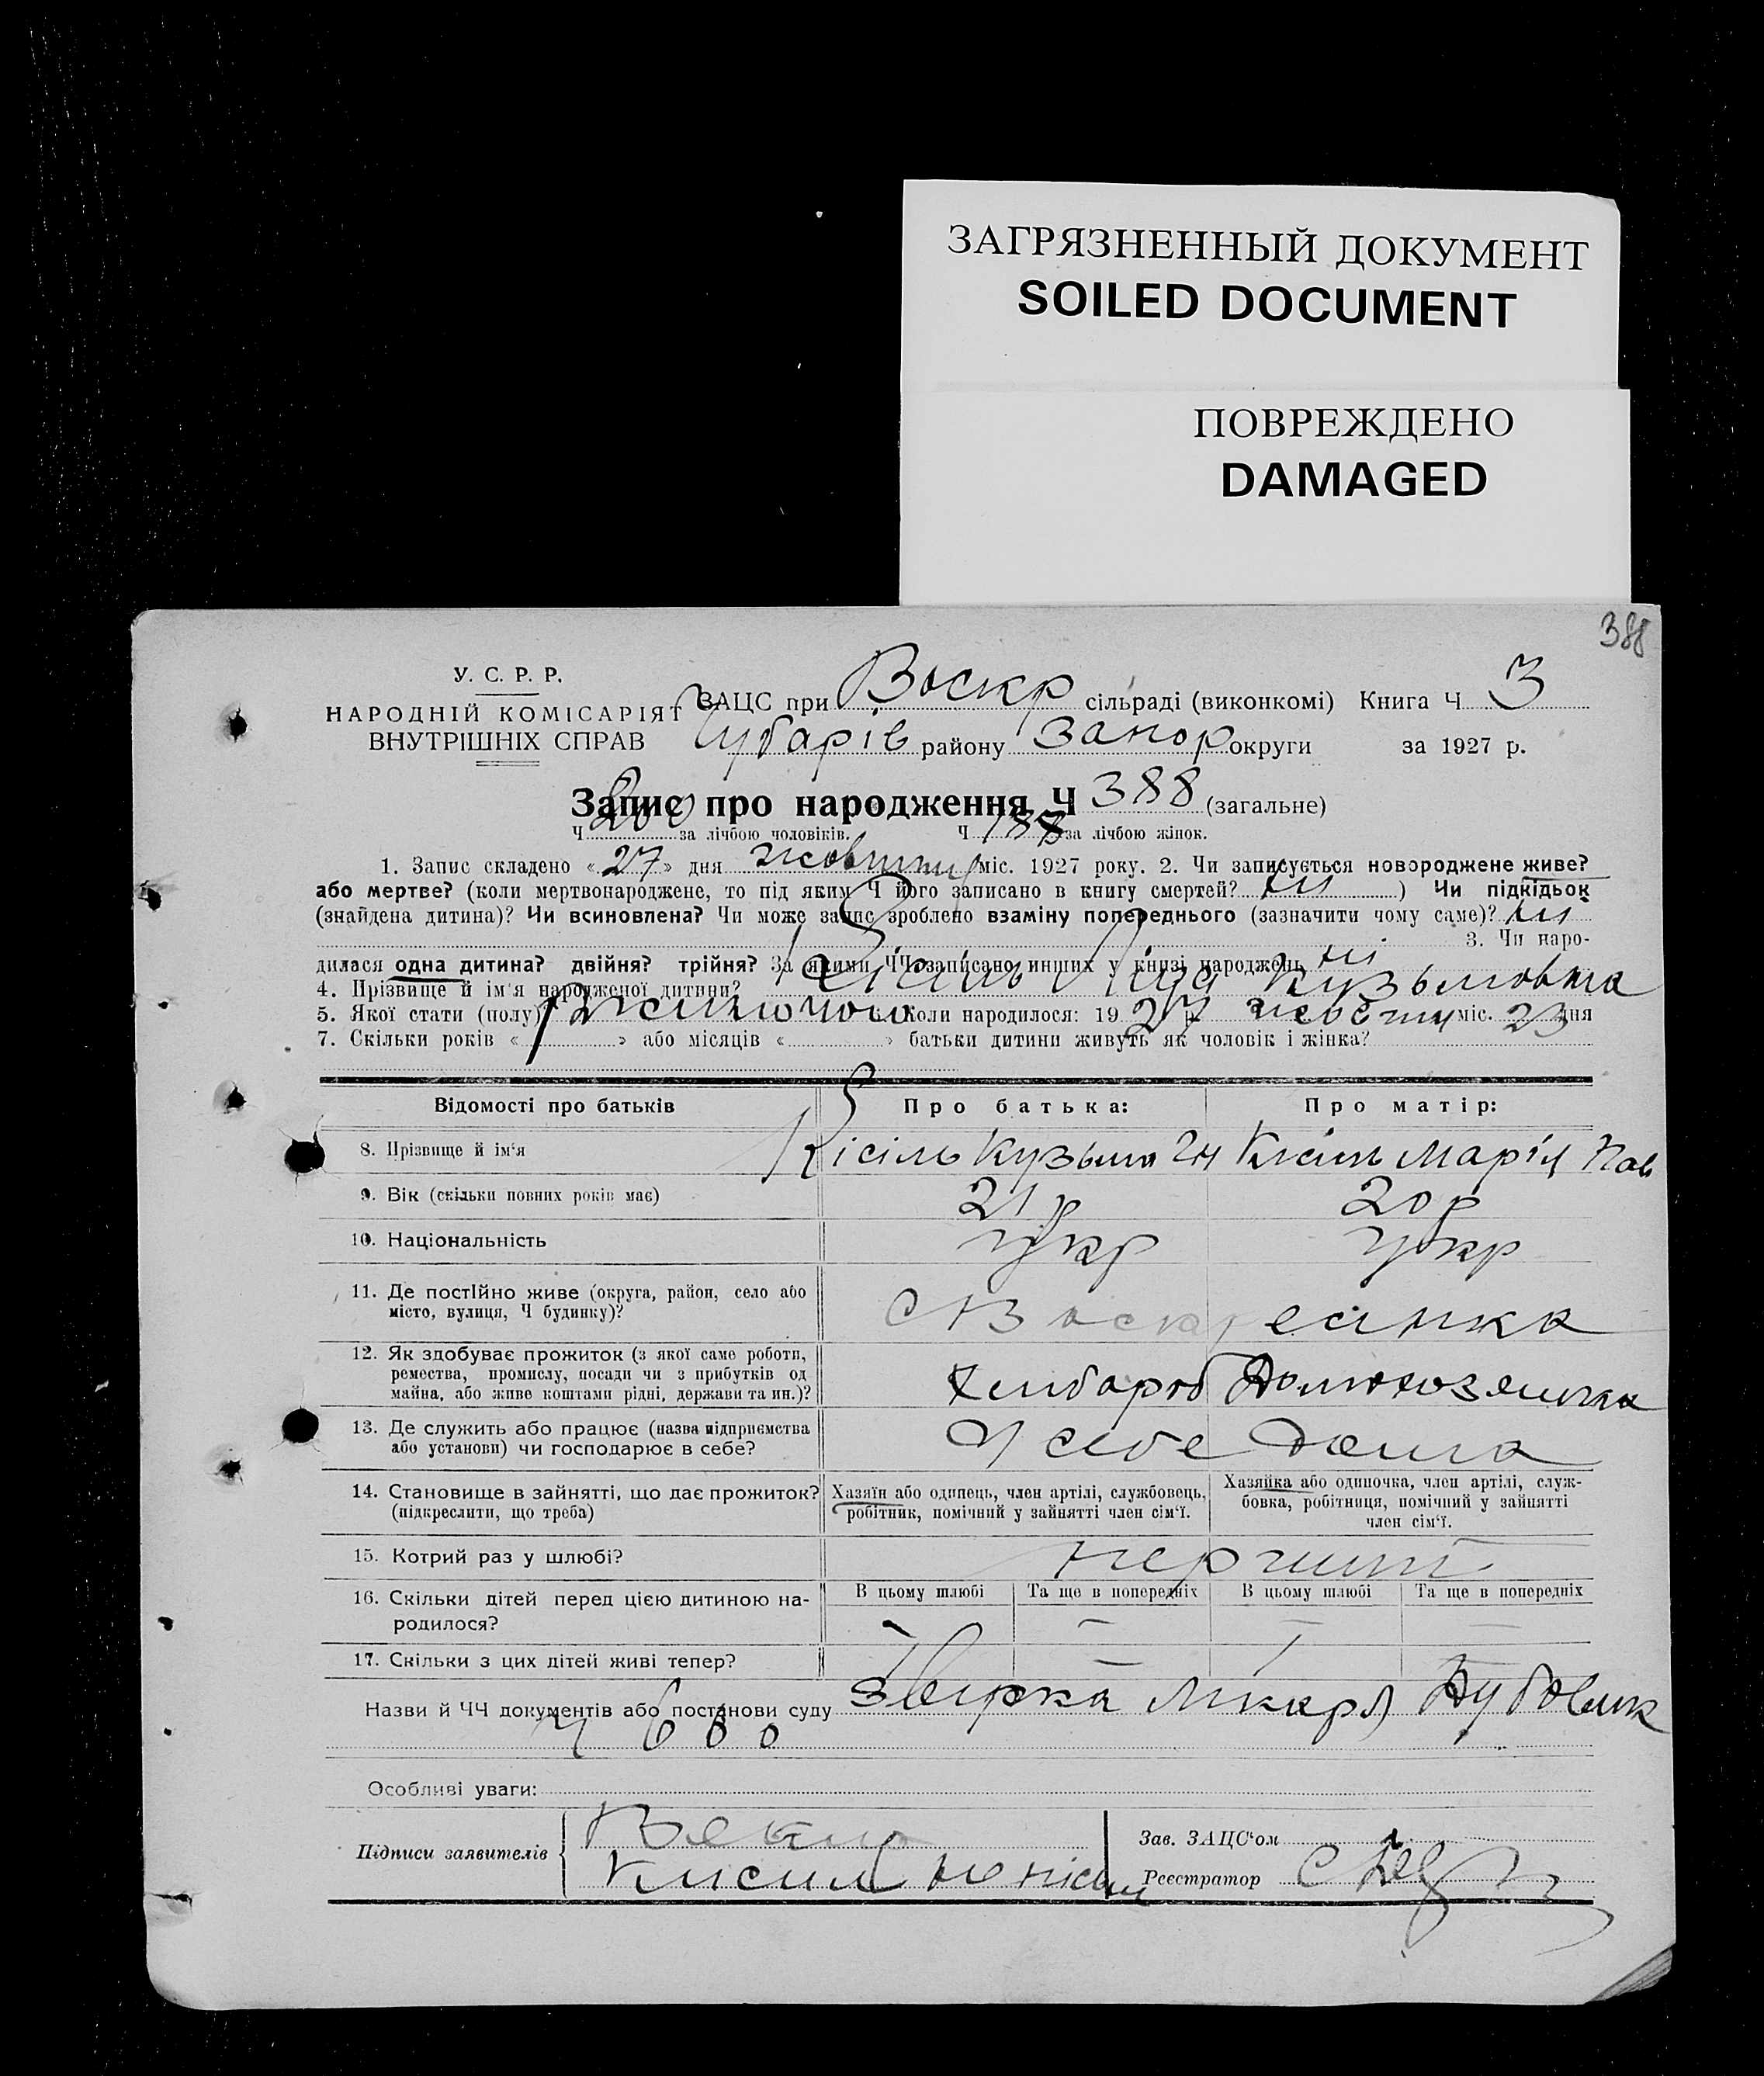 ЗАГРЯЗНЕННЫЙ ДОКУМЕНТ
SOILED DOCUMENT
ПОВРЕЖДЕНО
DAMAGED
388
У. С. Р. Р.
НАРОДНІЙ КОМІСАРІЯТ
ВНУТРІШНІХ СПРАВ
ЗАЦС при Воскр сільраді (виконкомі) Книга Ч 3
Чубарів району Запор округи за 1927 р.
Запис про народження Ч 388 (загальне)
Ч 200 за лічбою чоловіків. Ч 188 за лічбою жінок.
1. Запис складено «27» дня жовтня міс. 1927 року. 2. Чи записується новороджене живе?
або мертве? (коли мертвонароджене, то під яким Ч його записано в книгу смертей? ні) Чи підкідьок
(знайдена дитина)? Чи всиновлена? Чи може запис зроблено взаміну попереднього (зазначити чому саме)? ні
3. Чи наро-
дилася одна дитина? двійня? трійня? За якими ЧЧ записано инших у книзі народжень ні
4. Прізвище й ім'я народженої дитини? Кісіль Кузьмовна
5. Якої стати (полу) Жиночого Коли народилося: 1927 р. міс. 23 дня
7. Скільки років « » або місяців « » батьки дитини живуть як чоловік і жінка?
Відомості про батьків Про батька: Про матір:
8. Прізвище й ім'я Кісіль Кузьма Кісіль Марія Пав
9. Вік (скільки повних років має) 21 р 20 р
10. Національність укр укр
11. Де постійно живе (округа, район, село або
місто, вулиця, Ч будинку)? С Воскресінка
12. Як здобуває прожиток (з якої саме роботи,
ремества, промислу, посади чи з прибутків од
майна, або живе коштами рідні, держави та ин.)? Хлибороб Домохозяйка
13. Де служить або працює (назва підприємства
або установи) чи господарює в себе? У себе дома
14. Становище в зайнятті, що дає прожиток?
(підкреслити, що треба)
Хазяїн або одинець, член артілі, службовець,
робітник, помічний у зайнятті член сім'ї.
Хазяйка або одиночка, член артілі, служ-
бовка, робітниця, помічний у зайнятті
член сім'ї.
15. Котрий раз у шлюбі? перший
16. Скільки дітей перед цією дитиною на-
родилося?
В цьому шлюбі Та ще в попередніх В цьому шлюбі Та ще в попередніх
17. Скільки з цих дітей живі тепер?
Назви й ЧЧ документів або постанови суду
Особливі уваги:
Підписи заявителів
Кисиль
Зав. ЗАЦС'ом
Реєстратор